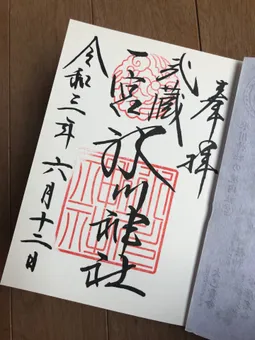 奉拝
武蔵
一宮 氷川神社
令和三年六月十二日